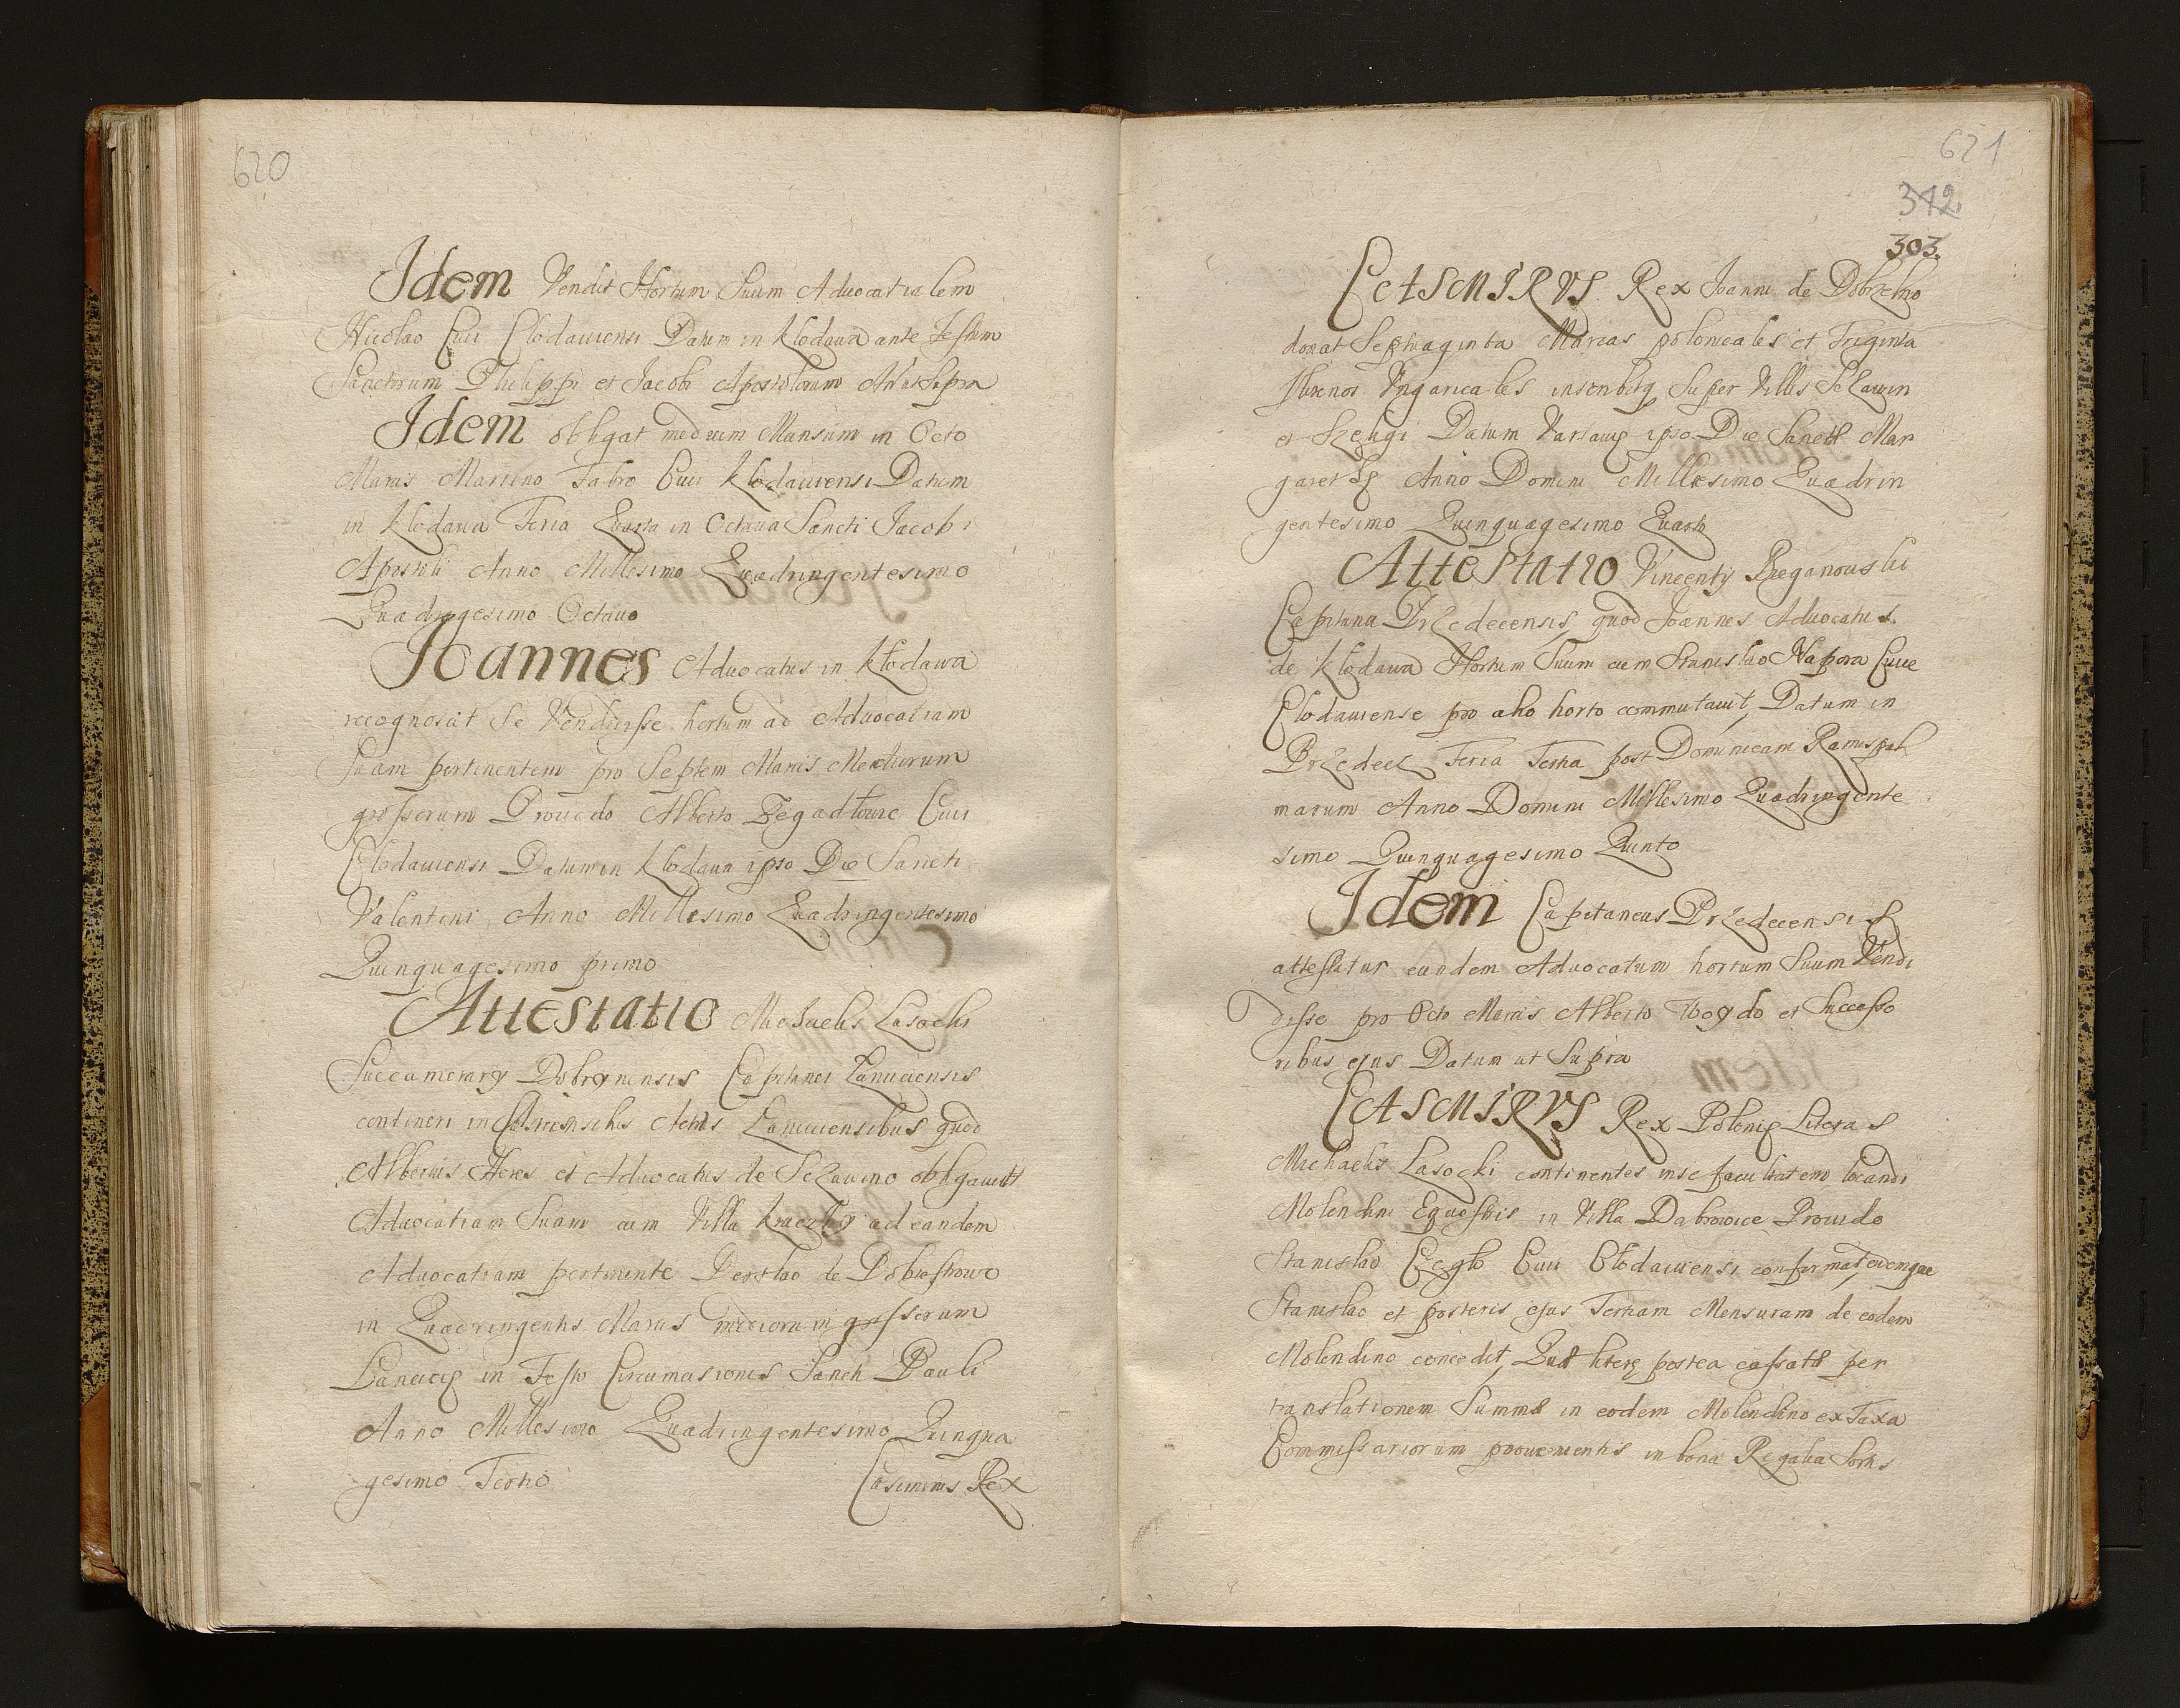 620
Idem Vendit Hortum Suum Aduocatialem
Nicolao Ciui Clodauiensi Datum in Klodawa ante Festum
Sanctorum Philippi et Jacobi Apostolorum Ad ut Supra
Idem obligat medium Mansum in Octo
Marcis Martino Fabro Ciui Klodauiensi Datum
in Klodawa Feria Quarta in Octaua Sancti Jacobi
Apostoli Anno Millesimo Quadringentesimo
Quadragesimo Octauo
Joannes Aduocatus in Kłodawa
recognoscit Se Vendidisse hortum ad Aduocatiam
Suam pertinentem pro Septem Marcis Mediorum
grossorum Prouido Alberto Zegadłowic Ciui
Clodauiensi Datum in Klodawa ipso Die Sancti
Valentini Anno Millesimo Quadringentesimo
Quinquagesimo primo
Attestatio Michaelis Lasocki
Succamerarÿ Dobrÿnensis Capitanei Lanciciensis
contineri in Castrensibus Actis Lanciciensibus quod
Albertus Heres et Aduocatus de Sczawino obligauit
Aduocatiam Suam cum Villa ad eandem
Aduocatiam pertinente Derslao de
in Quadringentis Marcis mediorum grossorum
Lancicię in Festo Circumcisionis Sancti Pauli
Anno Millesimo Quadringentesimo Quinqua
gesimo Tertio
Casimirus Rex
621
342
303.
CASMIRVS Rex Joanni de Dobrzelino
donat Septuaginta Marcas polonicales et Triginta
florenos Vngaricales inscribitq Super Villis Sczawin
et Datum Varsauię ipso Die Sanctę Mar
garetę Anno Domini Millesimo Quadrin
gentesimo Quinquagesimo Quarto
Attestatio Vincentÿ
Capitanei Przedecensis, quod Joannes Aduocatus
de Klodawa Hortum Suum cum Stanislao Napora Ciue
Clodauiense pro alio horto commutauit, Datum in
Przedecz Feria Tertia post Dominicam Ramis pal
marum Anno Domini Millesimo Quadringente
simo Quinquagesimo Quinto
Idem Capitaneus Przedecensis
attestatur eundem Aduocatum hortum Suum Vendi
disse pro Octo Marcis Alberto Woÿdo et Successo
ribus ejus Datum ut Supra
CASMIRVS Rex Polonię Literas
Michaelis Lasocki continentes in se facultatem locandi
Molendini Equestris in Villa Dabrowice Prouido
Stanislao Ciui Clodauiensi confirmat, eidemque
Stanislao et posteris ejus Tertiam Mensuram de eodem
Molendino concedit, Quę literę postea cassatę per
translationem Summę in eodem Molendino ex Taxa
Commissariorum prouenientis in bona Regalia Sortis